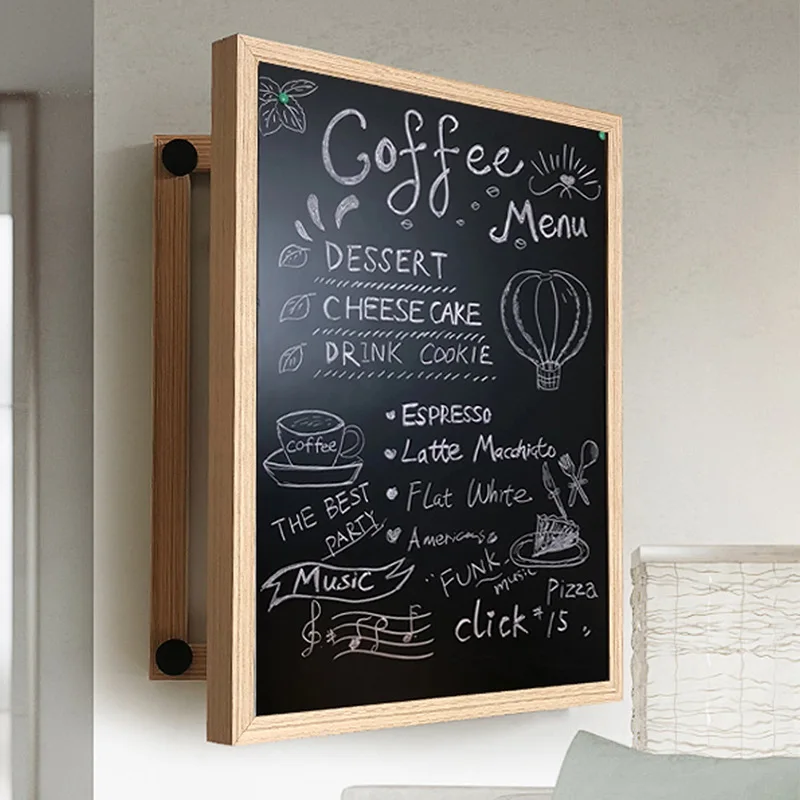 Coffee
Menu
DESSERT
CHEESE CAKE
DRINK COOKIE
ESPRESSO
coffee
Latte Macchiato
Flat White
THE BEST
PARTY
Americano
"FUNK
music
Music
Pizza
click #15